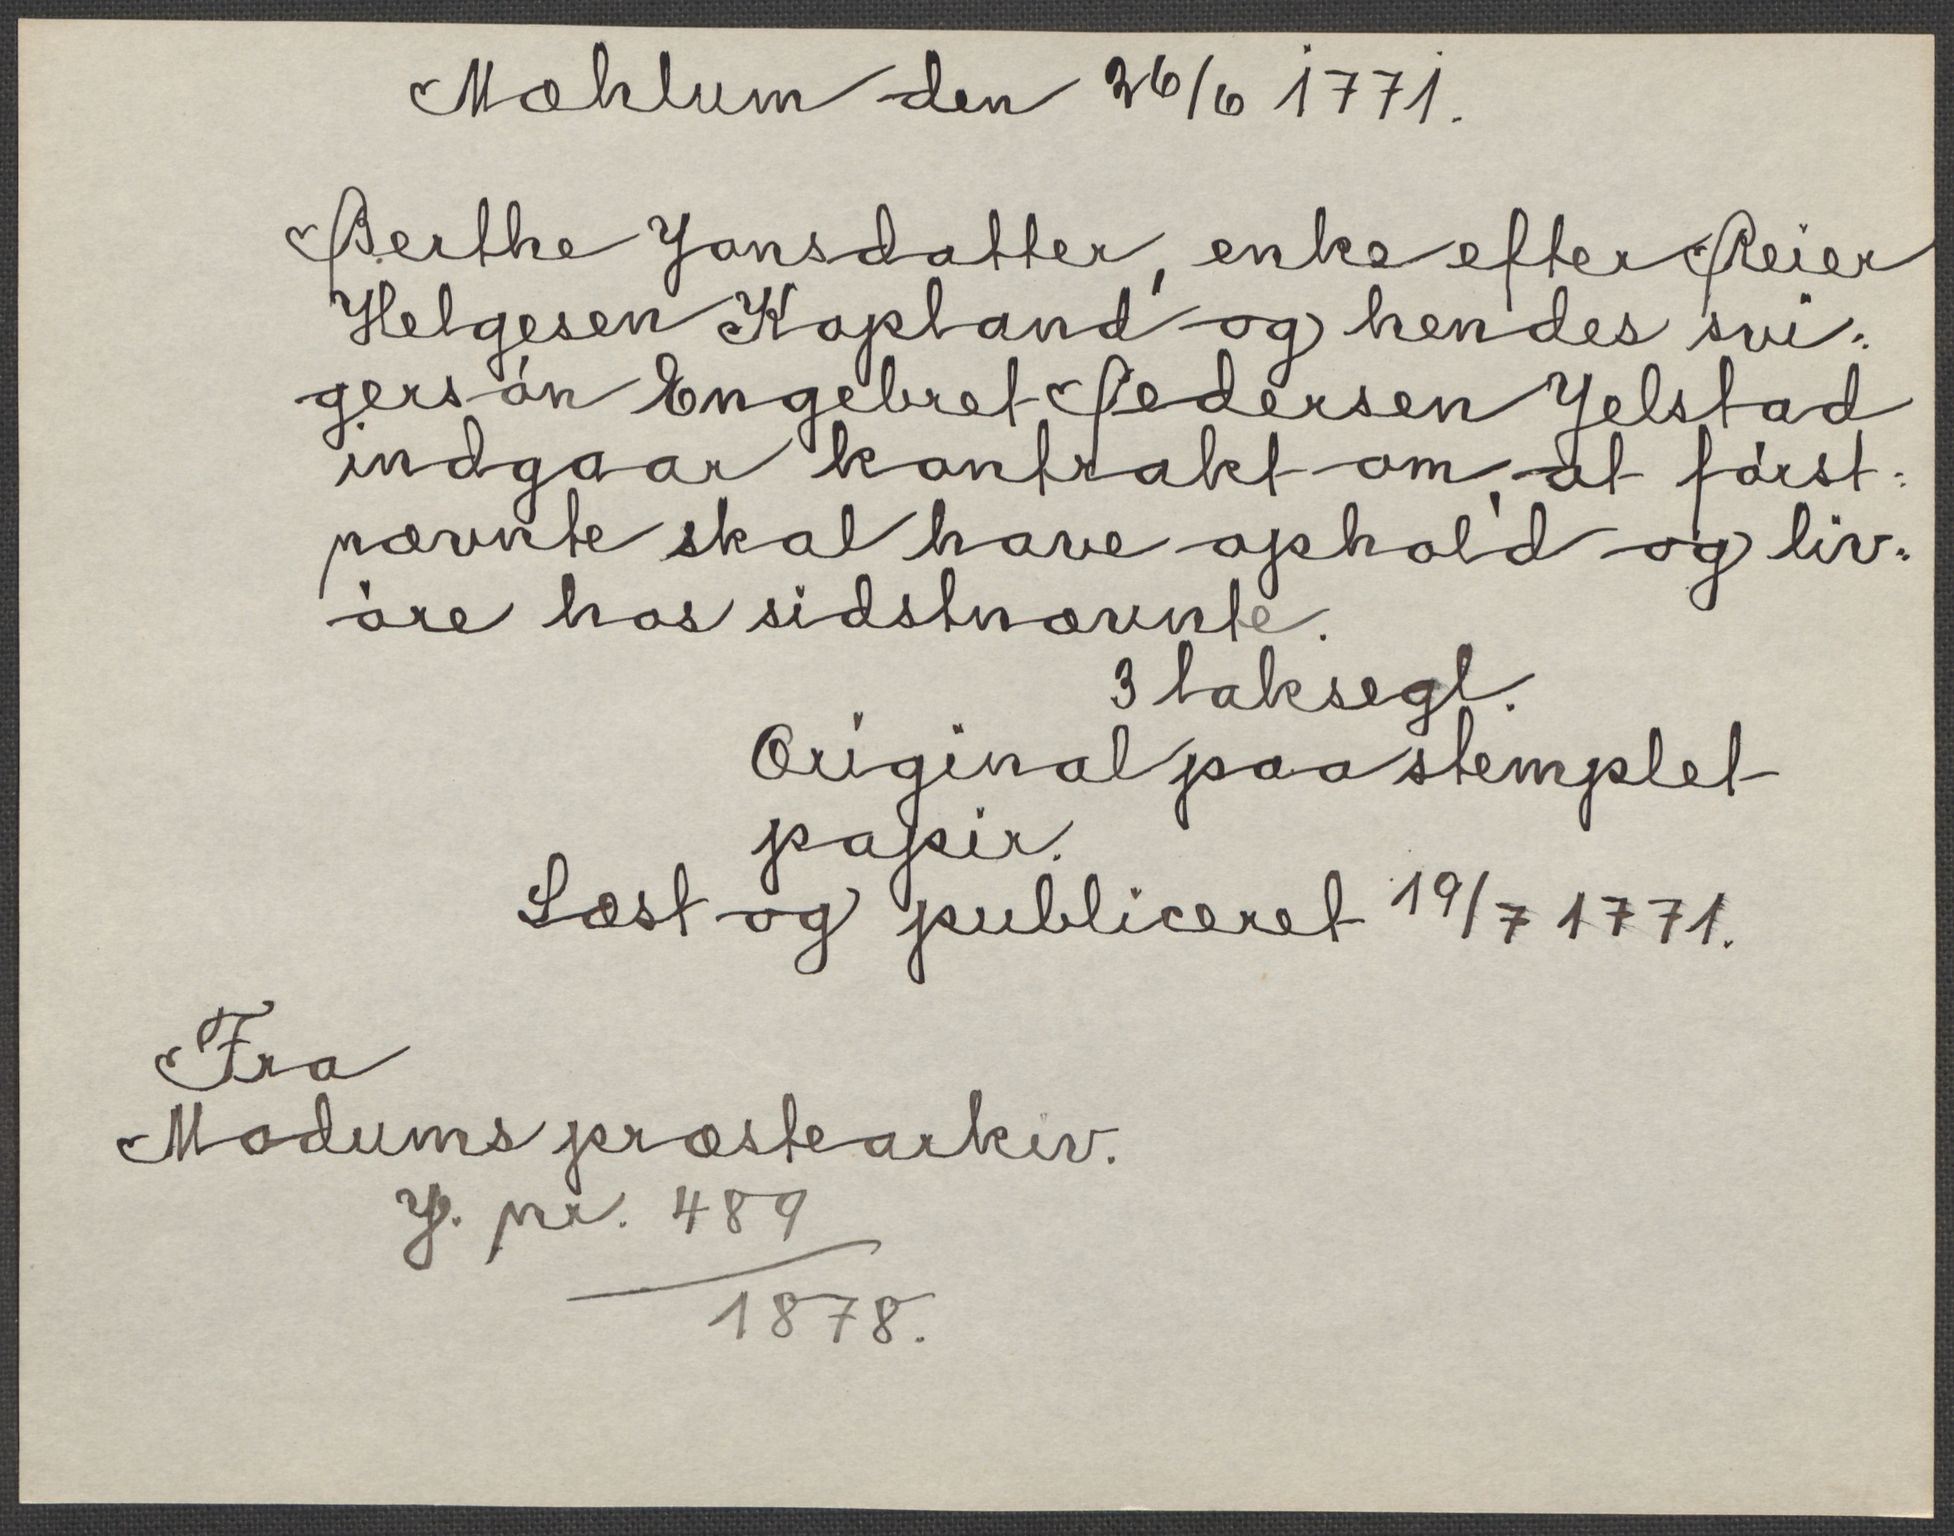 Mæhlum den 26/6 1771.
Berthe Jonsdatter, enke efter Reier
Helgesen Kopland og hendes svi-
gersón Engebret Pedersen Jelstad
indgaar kontrakt om, at fórst-
nævnte skal have ophold og liv-
óre hos sidstnævnte.
3 laksegl.
Original paa stemplet
papir.
Læst og publiceret 19/7 1771.
Fra
Modums præstearkiv.
J. nr. 489
1878.